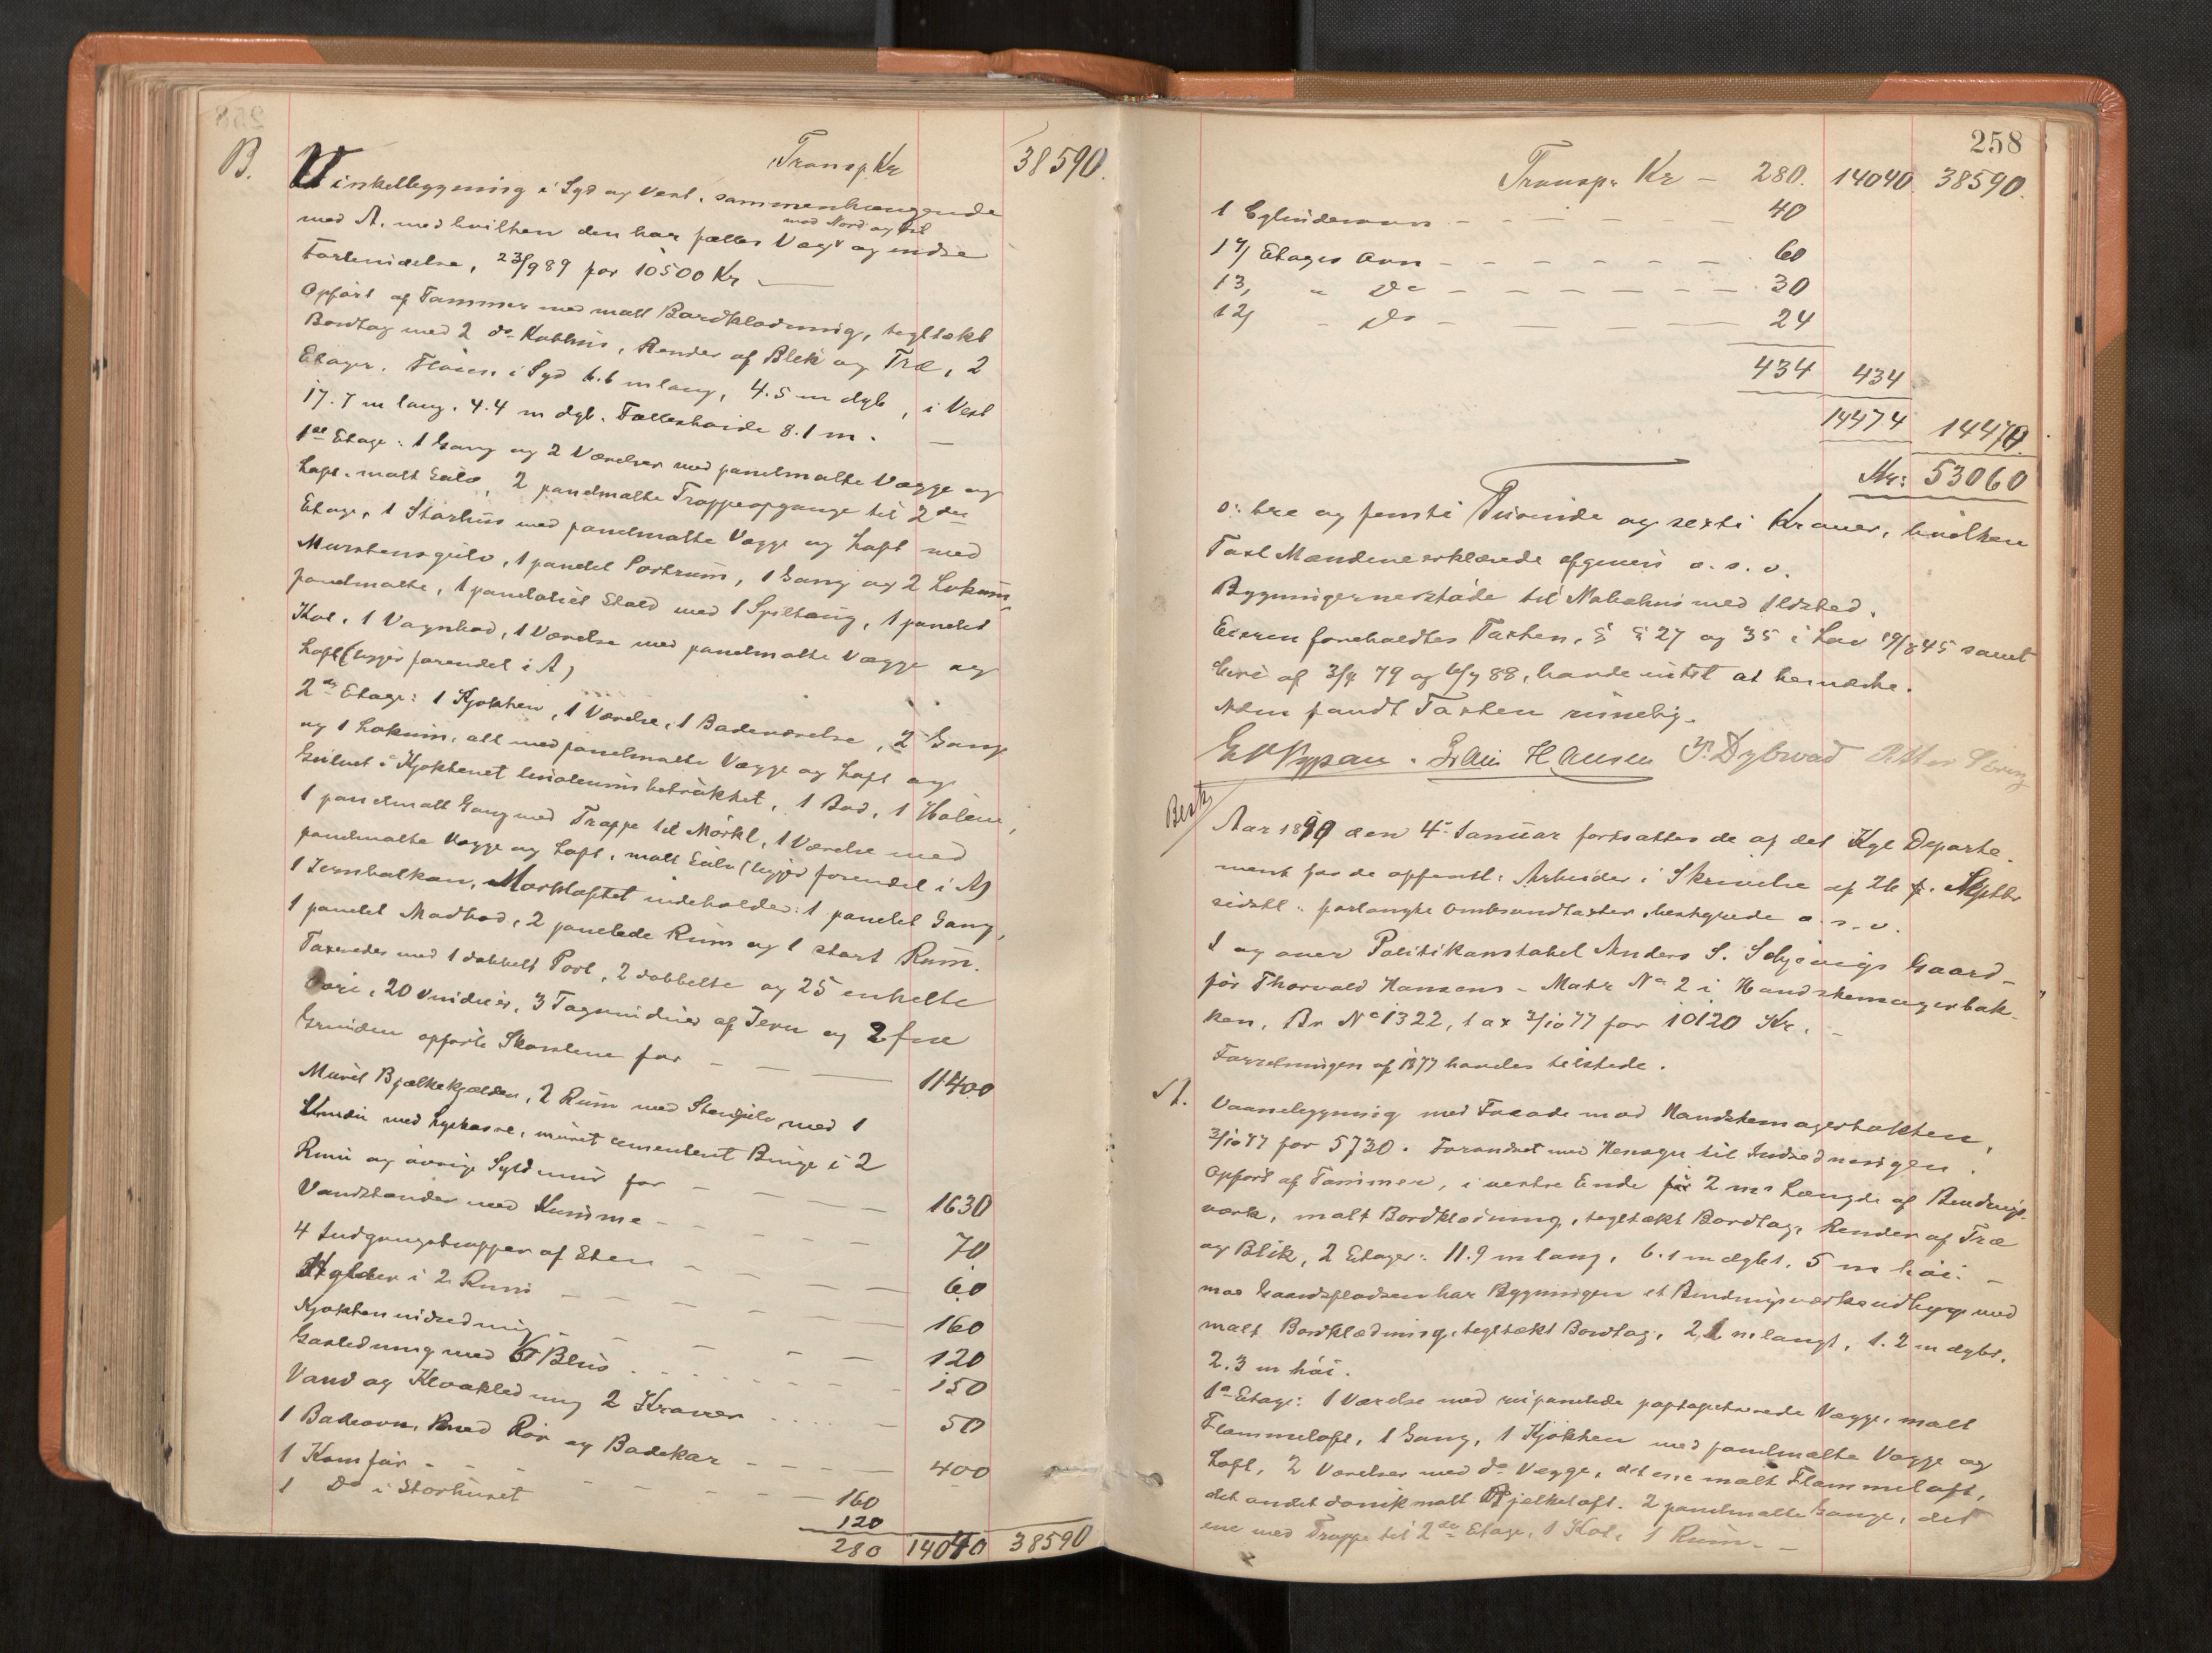 Transp. Kr 38590.
B. Vinkelbygning i Syd og Vest, sammenhængende
med A, med hvilken den har fælles Væg mod Nord og Øst og endre
Forbindelse, 23/9 89 for 10500 Kr. —
Opført af Tømmer med malt Bordklædning, tegltækt
Bordtag med 2 do Kobhus, Render af Blik og Træ, 2
Etager. Fløien i Syd 6.6 m lang, 4.5 m dyb, i Vest
17.7 m lang, 4.4 m dyb. Fælleshøide 8.1 m. —
1ste Etage: 1 Gang og 2 Værelser med panelmalte Vægge og
Loft, malt Gulv, 2 panelmalte Trappeopgange til 2den
Etage, 1 Storhus med panelmalte Vægge og Loft med
Murstensgulv, 1 panelet Portrum, 1 Gang og 2 Lokum,
panelmalte, 1 paneleret Stald med 1 Spiltoug, 1 panelet
Kot, 1 Vognbod, 1 Værelse med panelmalte Vægge og
Loft (ligger forendel i A)
2den Etage: 1 Kjøkken, 1 Værelse, 1 Badeværelse, 2 Gange
og 1 Lokum, alt med panelmalte Vægge og Loft og
Gulvet i Kjøkkenet linoleumsbetrukket, 1 Bod, 1
1 panelmalt Gang med Trappe til Mørkl, 1 Værelse med
panelmalte Vægge og Loft, malt Gulv (ligger forendel i A)
1 Jernbalkon, Mørkloftet indeholder: 1 panelet Gang,
1 panelet Madbod, 2 panelede Rum og 1 stort Rum.
Taxeredes med 1 dobbelt Port, 2 dobbelte og 25 enkelte
Døre, 20 Vinduer, 3 Tagvinduer af Jern og 2 fra
Grunden opførte Skorstene for — — — 11400
Muret Bjælkekjælder, 2 Rum med Stengulv med 1
Vindu med Lyskasse, muret cementeret Binge i 2
Rum og øvrige Syldmur for — — — 1630
Vandstander med Kumme — — — 70
4 Indgangstrapper af Sten — — — 60
Hylder i 2 Rum — — — 160
Kjøkkenindredning — — — 120
Gasledning med 6 Blus — — — 150
Vand og Kloakledning 2 Kraner — — 50
1 Badeovn, med Rør og Badekar — — 400
1 Komfur — — — 160
1 Do i Storhuset 120
280 14040 38590
258
Transp. Kr — 280. 14040. 38590.
1 Cylinderovn — — — 40
1 4/ Etages Ovn — — — 60
1 3, " Do — — — 30
1 2, " Do — — — 24
434 434
14474 14470.
Kr: 53060
o: tre og femti Tusinde og sexti Kroner, hvilken
Taxt Mændene erklærede afgiven o. s. v.
Bygningerne støde til Nabohus med Ildsted.
Eieren foreholdtes Taxten, § § 27 og 35 i Lov 19/8 45 samt
Circ af 3/4 79 og 6/7 88, havde intet at bemærke.
Adm fandt Taxten rimelig.
E. Nypan. Gram Hansen P. Dybwad
Besk/
Aar 1890 den 4de Januar fortsattes de af det Kgl Departe-
ment for de offentl. Arbeider i Skrivelse af 26 f. Septbr
sidstl. forlangte Ombrandtaxter, bestyrede o. s. v.
I og over Politikonstabel Anders S. Gaard —
før Thorvald Hansens — Matr No 2 i Handskemagerbak-
ken, Br No 1322, tax 2/10 77 for 10120 Kr. —
Forretningen af 1877 havdes tilstede.
A. Vaanebygning med Facade mod Handskemagerbakken,
2/10 77 for 5730. Forandret med Hensyn til Indredningen.
Opført af Tømmer, i vestre Ende for 2 ms Længde af Bindings-
værk, malt Bordklædning, tegltækt Bordtag, Render af Træ
og Blik, 2 Etager: 11.9 m lang, 6.1 m dybt, 5 m høi. —
mod Gaardspladsen har Bygningen et Bindingsværksudbygg med
malt Bordklædning, tegltækt Bordtag, 2.1 m langt, 1.2 m dybt,
2.3 m høi.
1ste Etage: 1 Værelse med panelede paptapetserede Vægge, malt
Flammeloft, 1 Gang, 1 Kjøkken med panelmalte Vægge og
Loft, 2 Værelser med do Vægge, det ene malt Flammeloft,
det andet dansk malt Bjelkeloft. 2 panelmalte Gange, det
ene med Trappe til 2den Etage, 1 Kot, 1 Rum. —